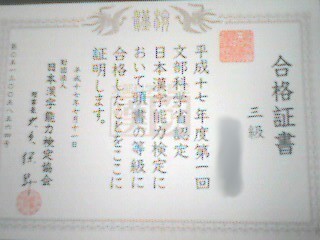 合格証書
三級
平成十七年度第一回
文部科学省認定
日本漢字能力検定に
おいて頭書の等級に
合格したことをここに
証明します。
平成十七年 月十一日
財団法人
日本漢字能力検定協会
理事長